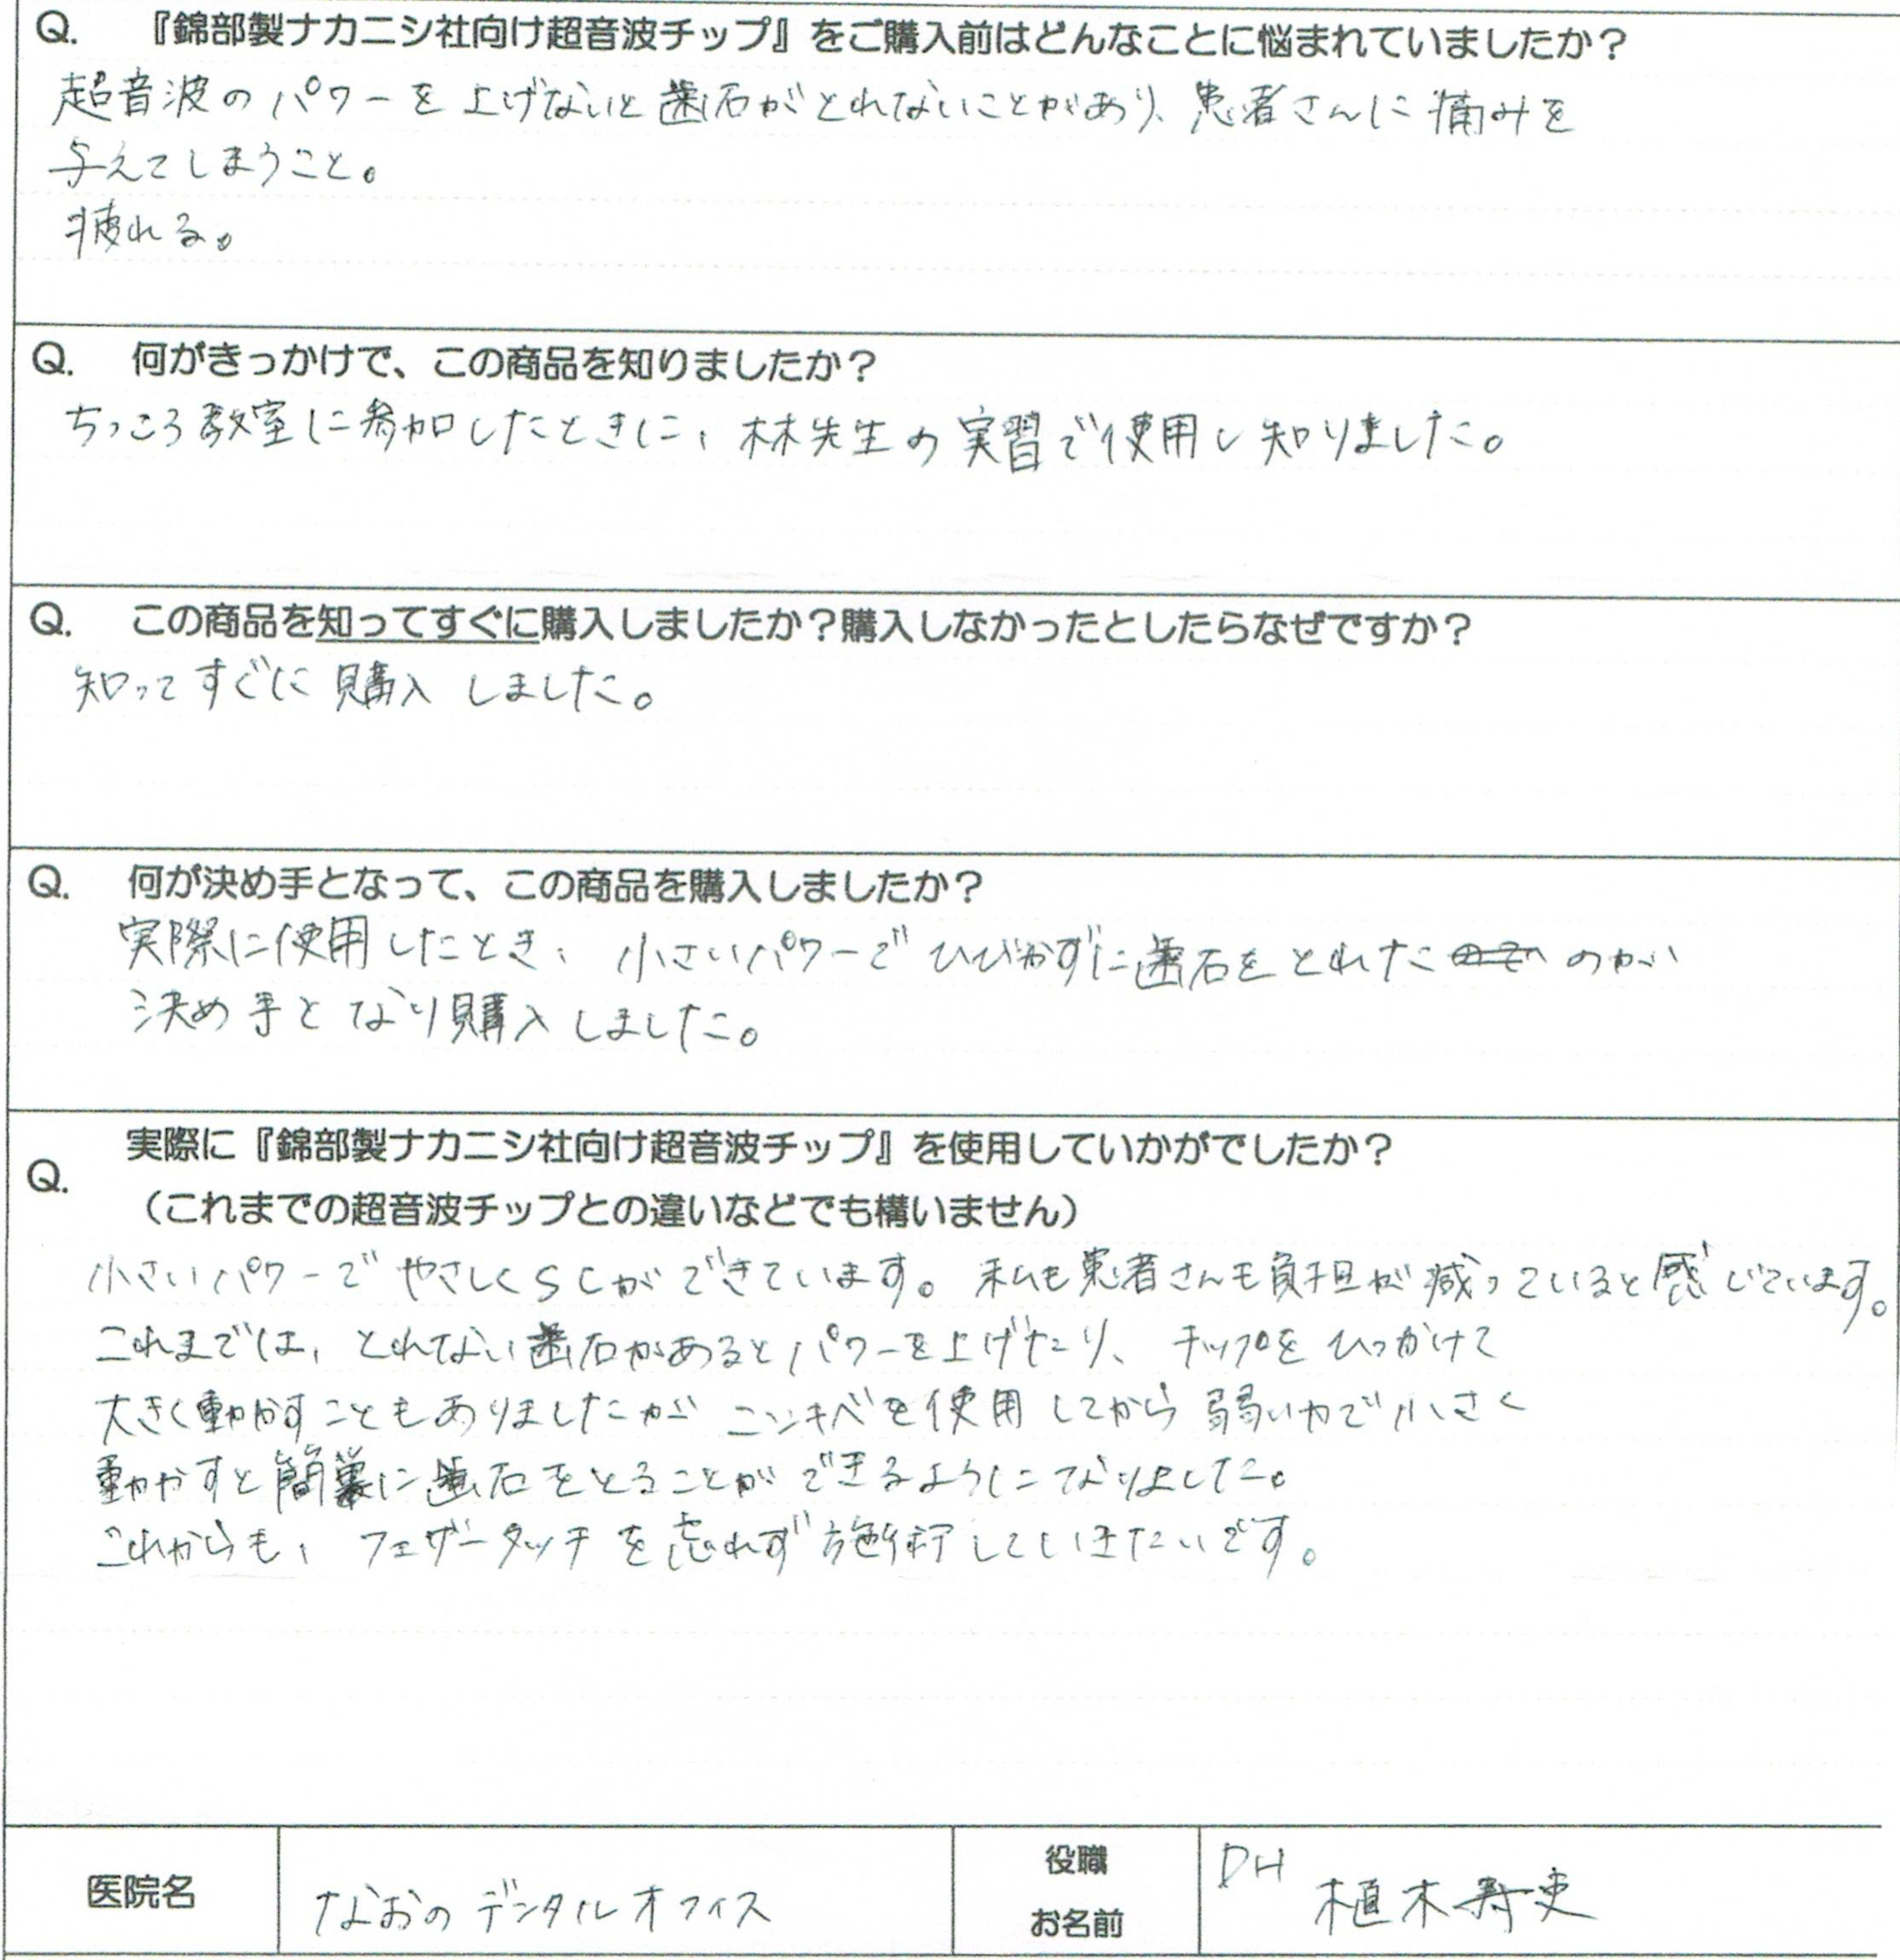 Q. 『錦部製ナカニシ社向け超音波チップ』をご購入前はどんなことに悩まれていましたか？
超音波のパワーを上げないと歯石がとれないことがあり、患者さんに痛みを
与えてしまうこと。
疲れる。
Q. 何がきっかけで、この商品を知りましたか？
ちっころ教室に参加したときに、林先生の実習で使用し知りました。
Q. この商品を知ってすぐに購入しましたか？購入しなかったとしたらなぜですか？
知ってすぐに購入しました。
Q. 何が決め手となって、この商品を購入しましたか？
実際に使用したとき、小さいパワーでひびかずに歯石をとれたのが
決め手となり購入しました。
Q. 実際に『錦部製ナカニシ社向け超音波チップ』を使用していかがでしたか？
（これまでの超音波チップとの違いなどでも構いません）
小さいパワーでやさしくSCができています。私も患者さんも負担が減っていると感じています。
これまでは、とれない歯石があるとパワーを上げたり、チップをひっかけて
大きく動かすこともありましたが ニシキベを使用してから弱い力で小さく
動かすと簡単に歯石をとることができるようになりました。
これからも、フェザータッチを忘れず施術していきたいです。
医院名 なおのデンタルオフィス 役職 DH
お名前 植木寿史